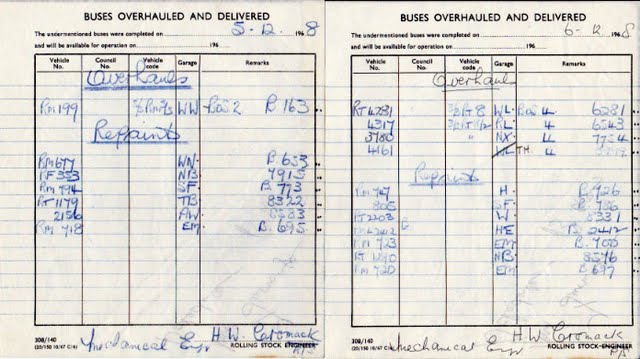 BUSES OVERHAULED AND DELIVERED
The undermentioned buses were completed on 5-12- 1968
and will be available for operation on 196
Vehicle No. Council No. Vehicle code Garage Remarks
Overhauls
RM 199 WW BOS 2 B 163
Repaints
RM 677 WN B. 653
RF 353 NB 7915
RM 794 SF B. 773
RT 1179 TB 8322
2156 AW 8383
RM 718 EM B. 695
308/140
(20/150 10/67 C16)
Mechanical Eng H.W. Cromack
ROLLING STOCK ENGINEER
BUSES OVERHAULED AND DELIVERED
The undermentioned buses were completed on 6-12 1968
and will be available for operation on 196
Vehicle No. Council No. Vehicle code Garage Remarks
Overhauls
RT 4281 WL BOS 4 6281
4317 RL 4 6543
3780 " NX 4 7754
4161 WL TH. 4
Repaints
RM 747 H. B. 726
805 SF B. 786
RT 2203 W 8331
2412 HE B. 2412
RM 723 EM B. 700
RT 1290 NB 8576
RM 720 EM B. 697
308/140
(20/150 10/67 C16)
Mechanical Eng H.W. Cromack
ROLLING STOCK ENGINEER